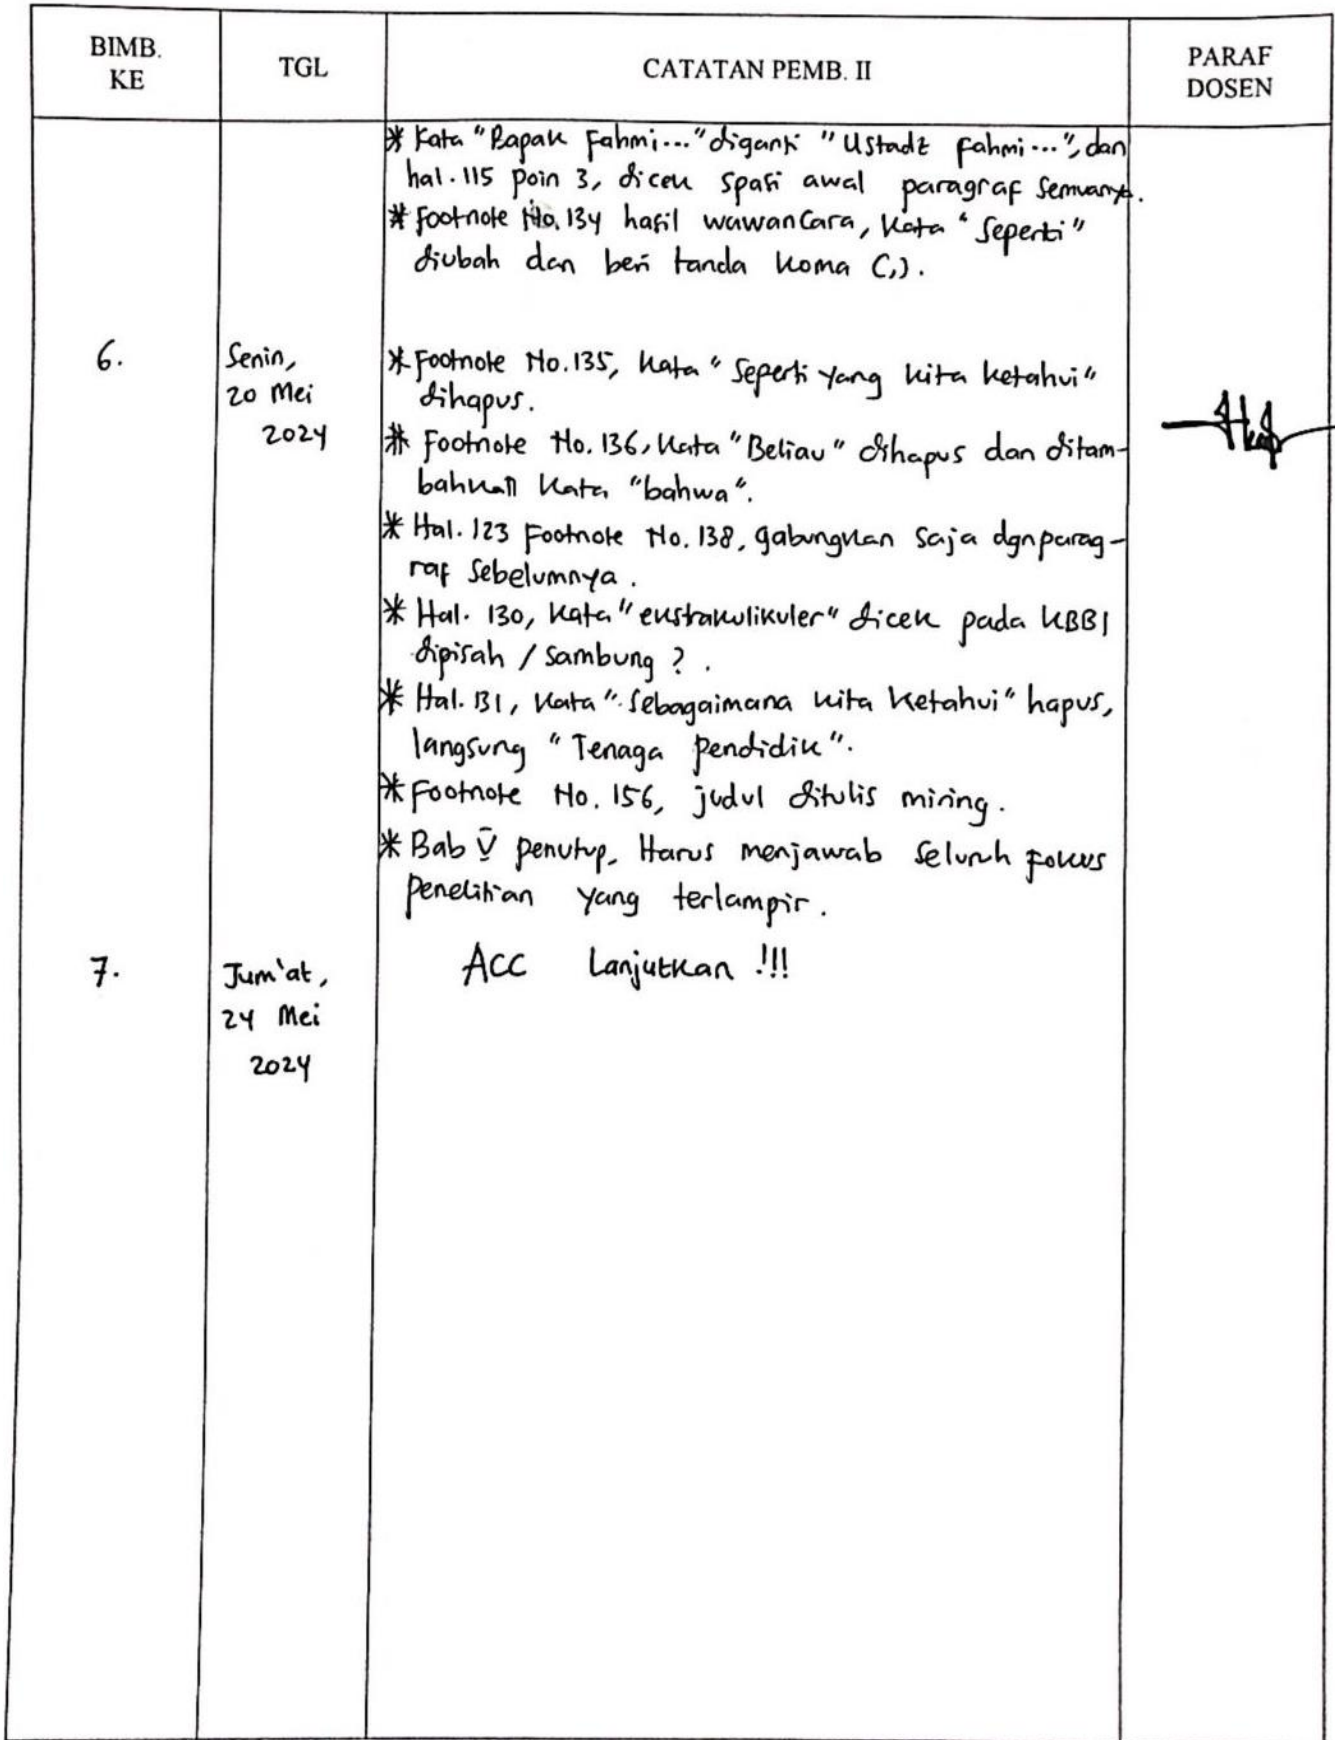 BIMB.
KE
TGL
CATATAN PEMB. II
PARAF
DOSEN
* Kata "Bapak Fahmi..." diganti "Ustadz Fahmi...", dan
hal. 115 poin 3, dicek spasi awal paragraf semuanya.
* Footnote No. 134 hasil wawancara, kata "Seperti"
diubah dan beri tanda koma (,).
6.
Senin,
20 Mei
2024
* Footnote No. 135, kata "Seperti yang kita ketahui"
dihapus.
* Footnote No. 136, kata "Beliau" dihapus dan ditam-
bahkan kata "bahwa".
* Hal. 123 Footnote No. 138, gabungkan saja dgn parag-
raf sebelumnya.
* Hal. 130, kata "ekstrakulikuler" dicek pada KBBI
dipisah / sambung ?.
* Hal. 131, kata "Sebagaimana kita ketahui" hapus,
langsung "Tenaga pendidik".
* Footnote No. 156, judul ditulis miring.
* Bab V penutup, Harus menjawab seluruh fokus
penelitian yang terlampir.
7.
Jum'at,
24 Mei
2024
ACC Lanjutkan !!!